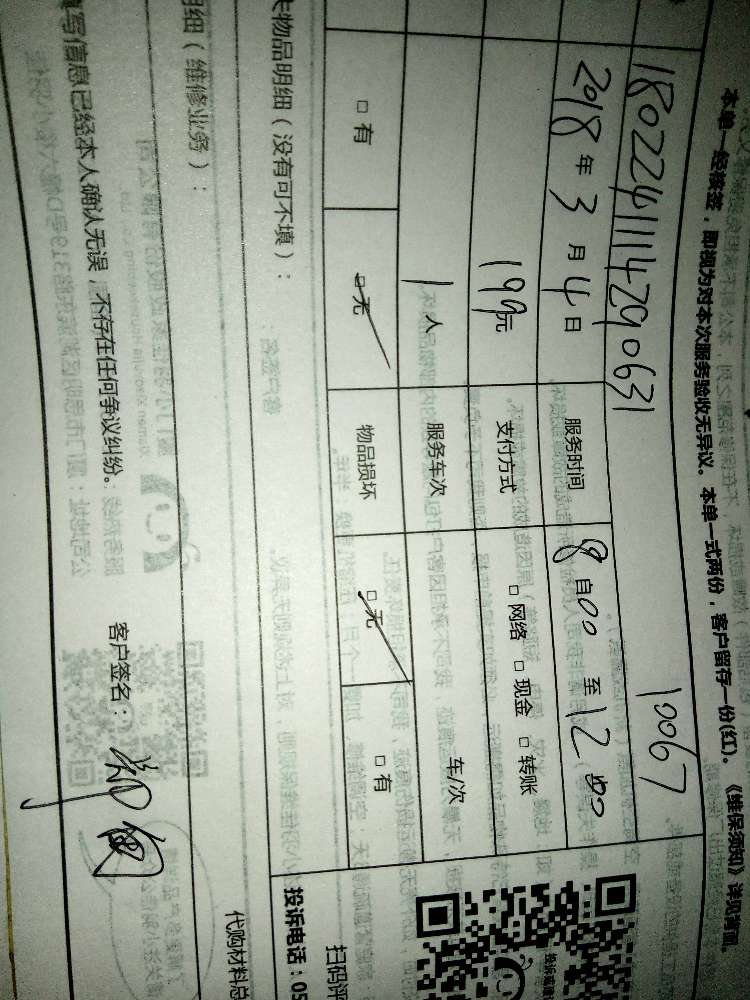 本单一经接签，即视为对本次服务验收无异议。本单一式两份，客户留存一份(红)。《维保须知》详见背面。
18022411114290631 10067
2018年3月4日 服务时间 8自00 至 12 00
199元 支付方式 □ 网络 □ 现金 □ 转账
1人 服务车次 车/次
□ 有 □ 无 物品损坏 □ 无 □ 有
物品明细（没有可不填）：
扫码评
投诉电话：05
细（维修业务）：
代购材料总
写信息已经本人确认无误，不存在任何争议纠纷。 客户签名：